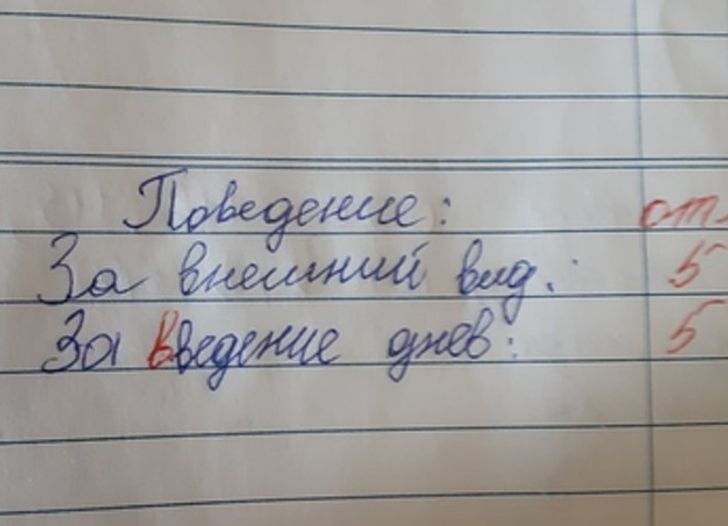 Поведение: от
За внешний вид.: 5
За введение днев: 5